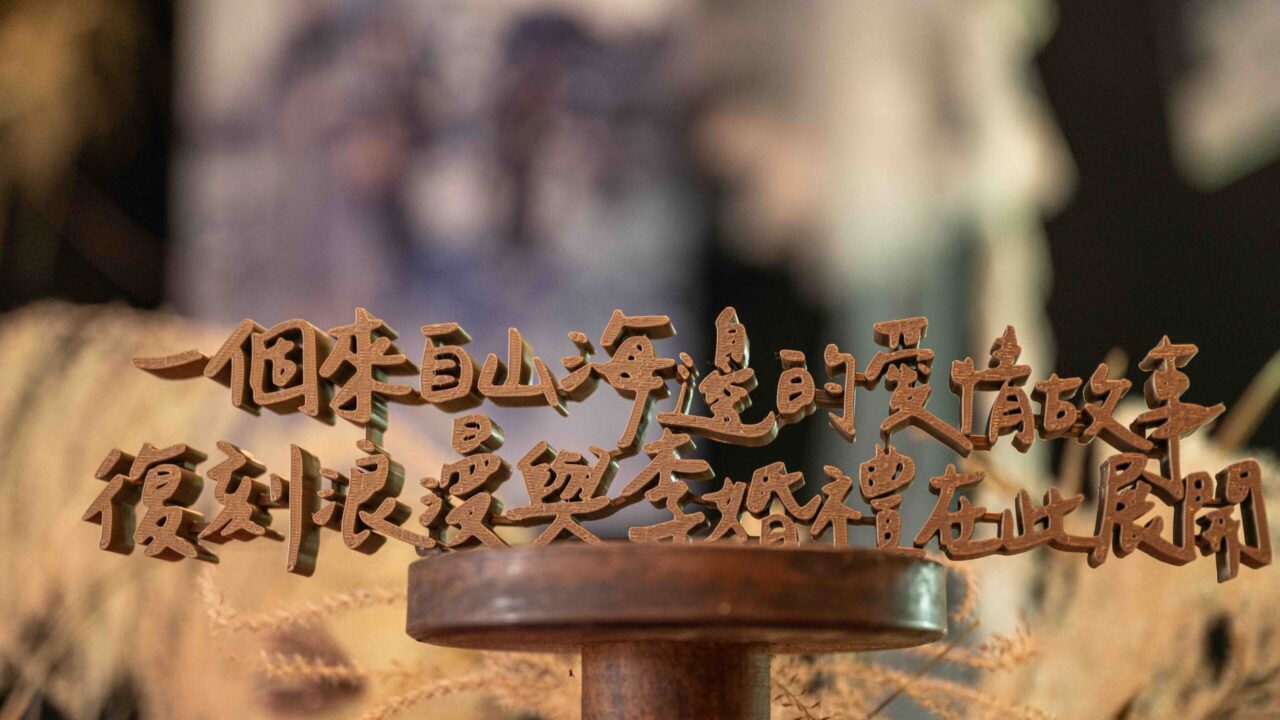 一個來自山海邊的愛情故事
復刻浪漫與李婚禮在此展開